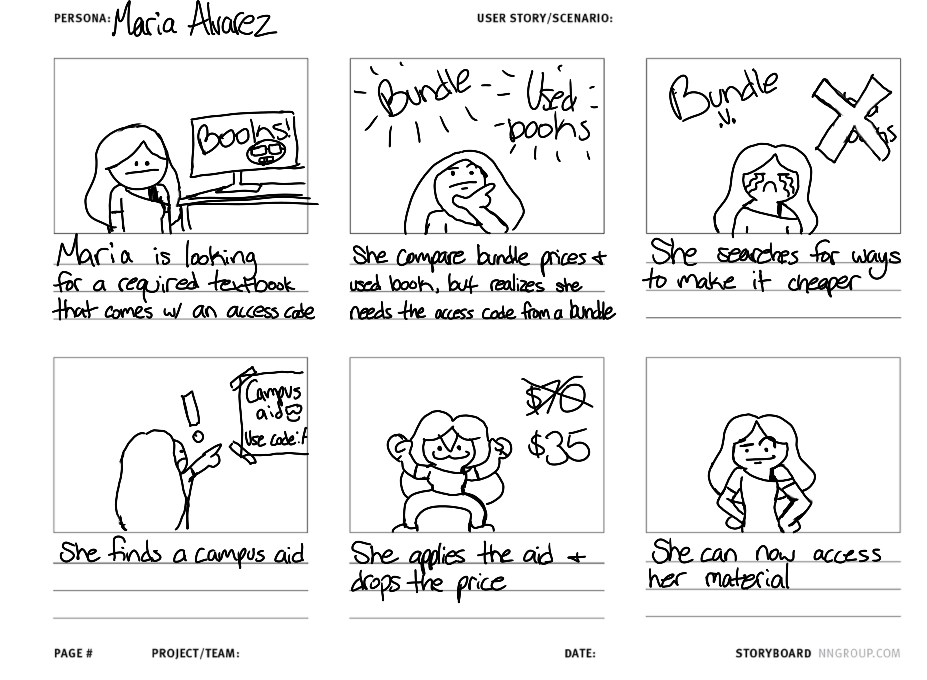 PERSONA: Maria Alvarez
USER STORY/SCENARIO:
Books!
Maria is looking
for a required textbook
that comes w/ an access code
Bundle
Used
books
She compare bundle prices +
used book, but realizes she
needs the access code from a bundle
Bundle
She searches for ways
to make it cheaper
!
Campus
aid
Use code:
She finds a campus aid
$70
$35
She applies the aid +
drops the price
She can now access
her material
PAGE #
PROJECT/TEAM:
DATE:
STORYBOARD NNGROUP.COM